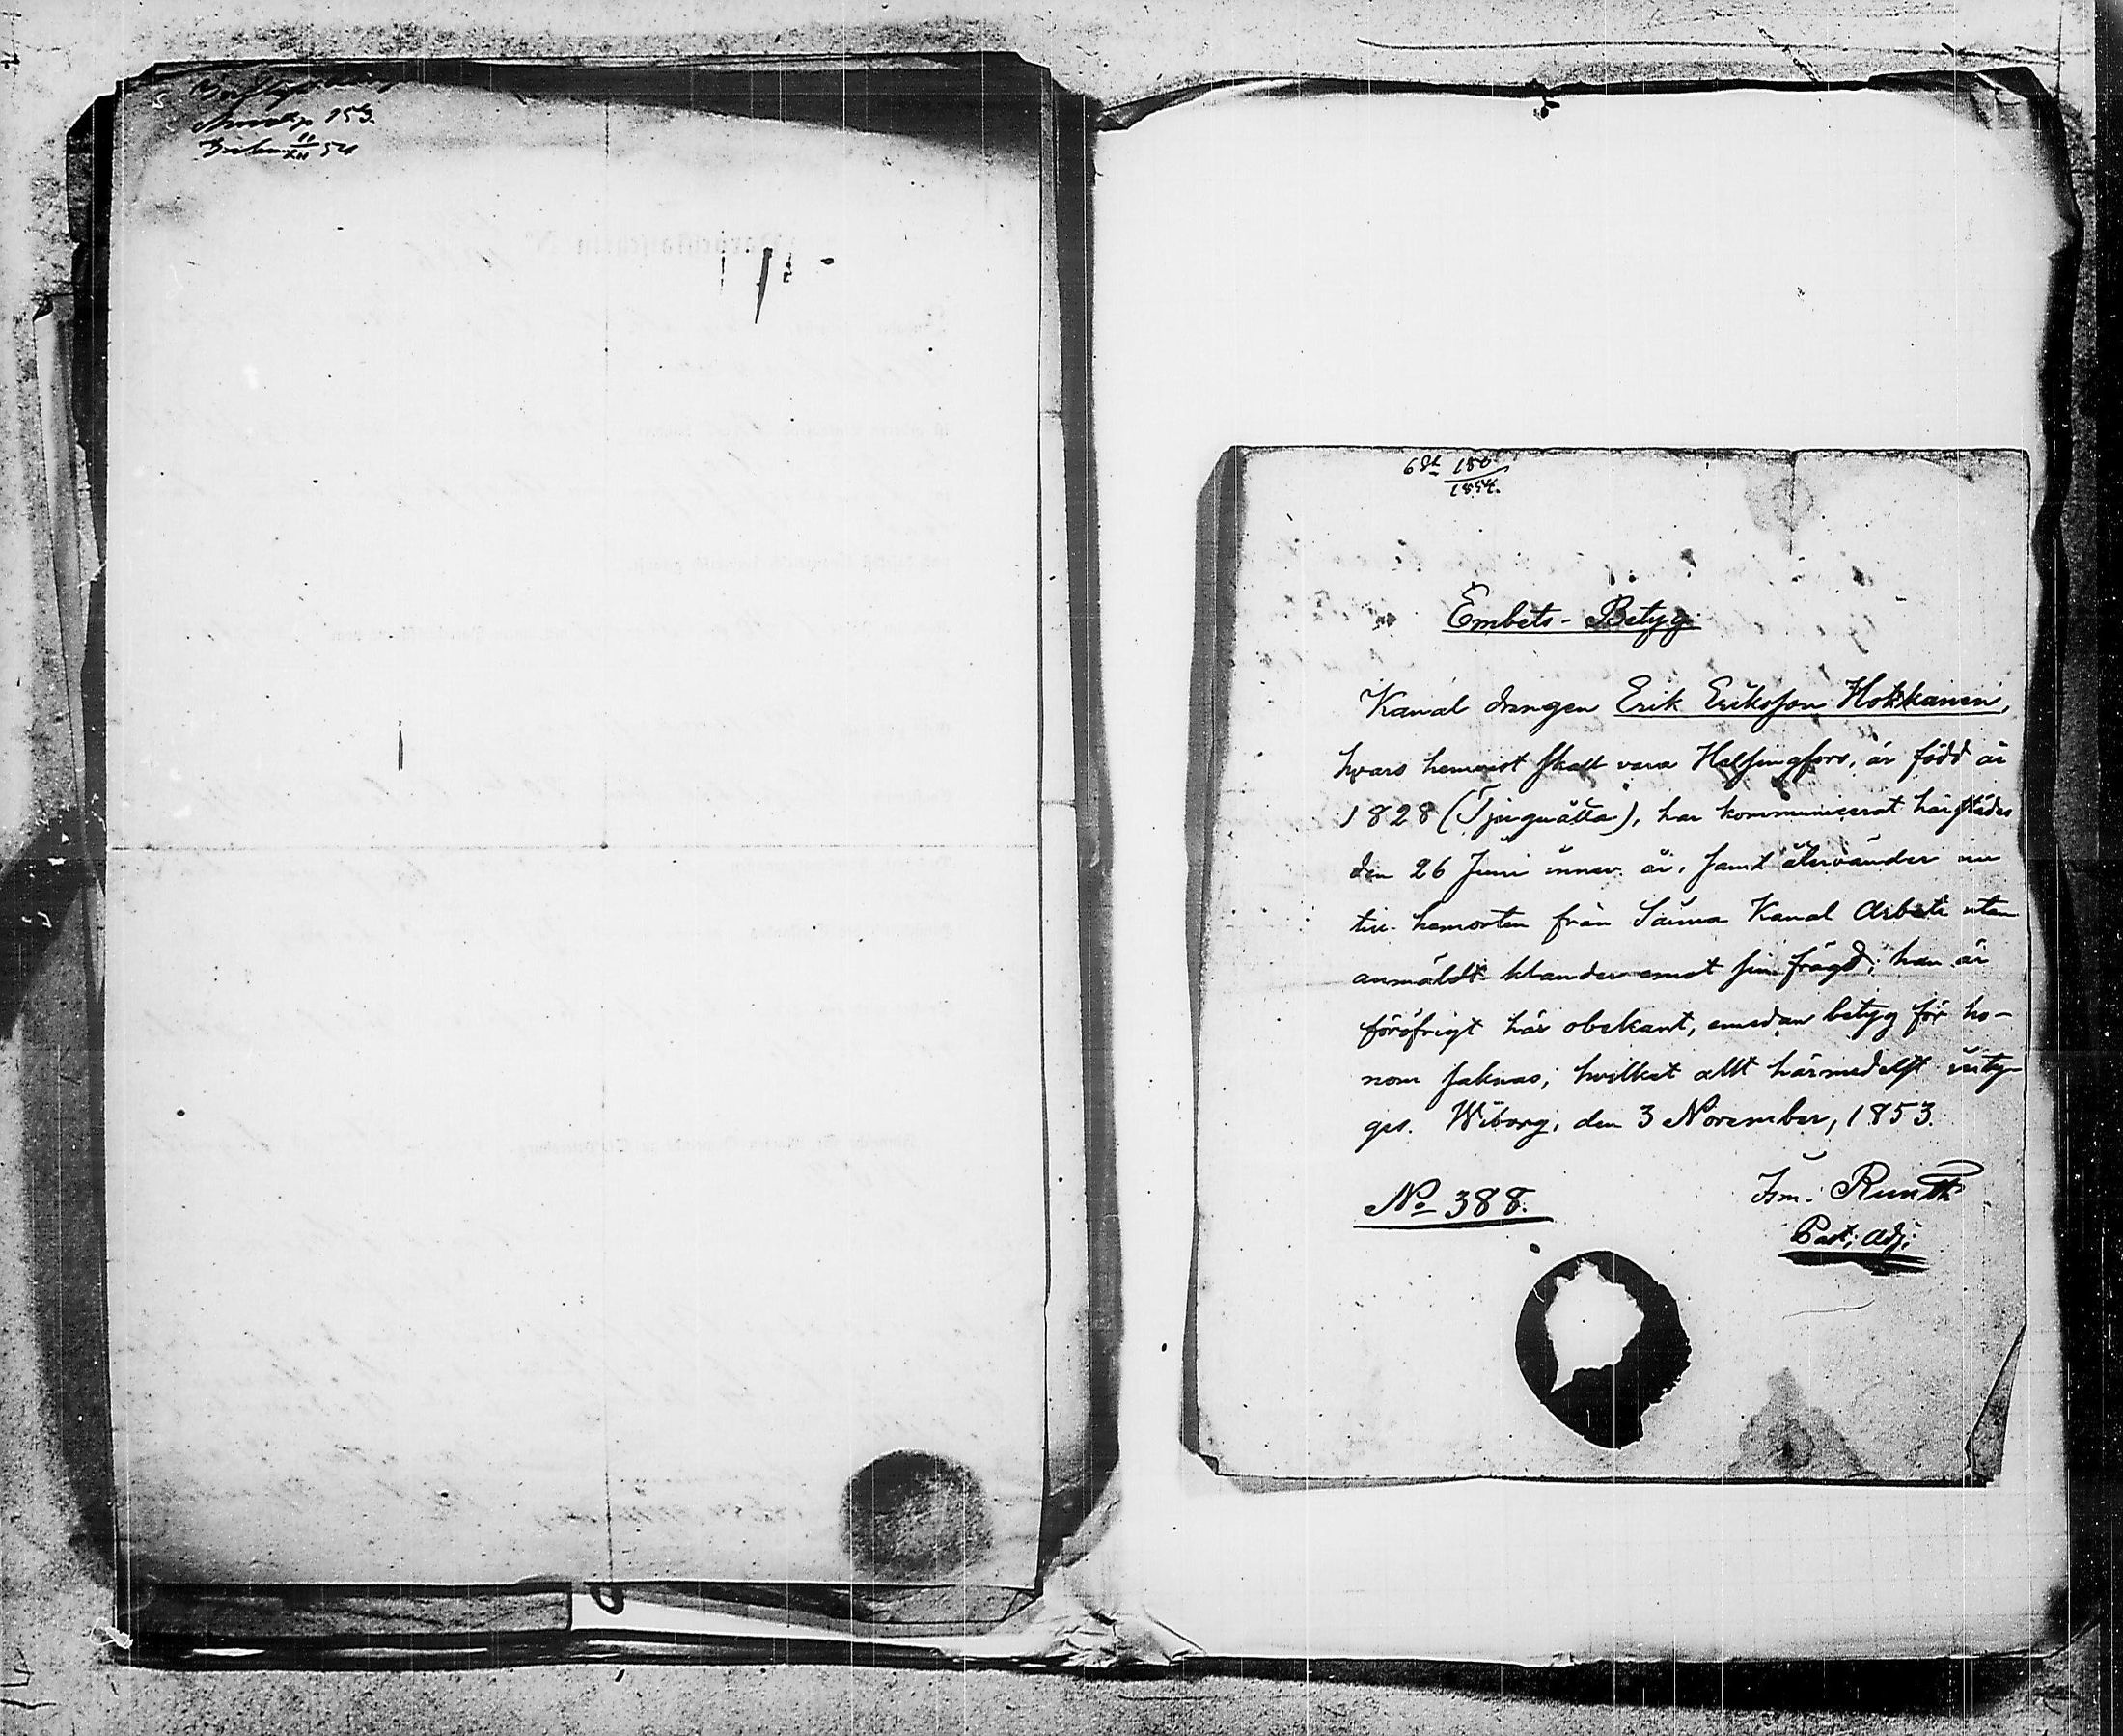 153.
11/XII 54
6 St 180/1854.
Embets-Betyg.
Kanal drängen Erik Eriksson Hokkanen,
hvars hemvist skall vara Helsingfors, är född år
1828 (Tjuguåtta), har kommunicerat härstädes
den 26 Juni innev. år, samt återvänder nu
till hemorten från Saima Kanal Arbete utan
anmäldt klander emot sin frägd; han är
föröfrigt här obekant, emedan betyg för ho-
nom saknas; hvilket allt härmedelst inty-
gas. Wiborg, den 3 November, 1853.
No 388.
Past. Adj: